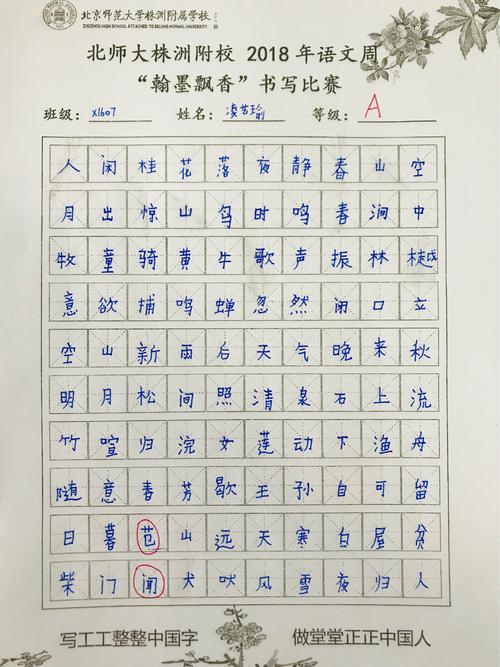 北京师范大学株洲附属学校
ZHUZHOU HIGH SCHOOL ATTACHED TO BEIJING NORMAL UNIVERSITY
北师大株洲附校 2018 年语文周
“翰墨飘香”书写比赛
班级: X1607 姓名: 等级: A
人闲桂花落夜静春山空
月出惊山鸟时鸣春涧中
牧童骑黄牛歌声振林樾
意欲捕鸣蝉忽然闭口立
空山新雨后天气晚来秋
明月松间照清泉石上流
竹喧归浣女莲动下渔舟
随意春芳歇王孙自可留
日暮山远天寒白屋贫
柴门闻犬吠风雪夜归人
写工工整整中国字 做堂堂正正中国人